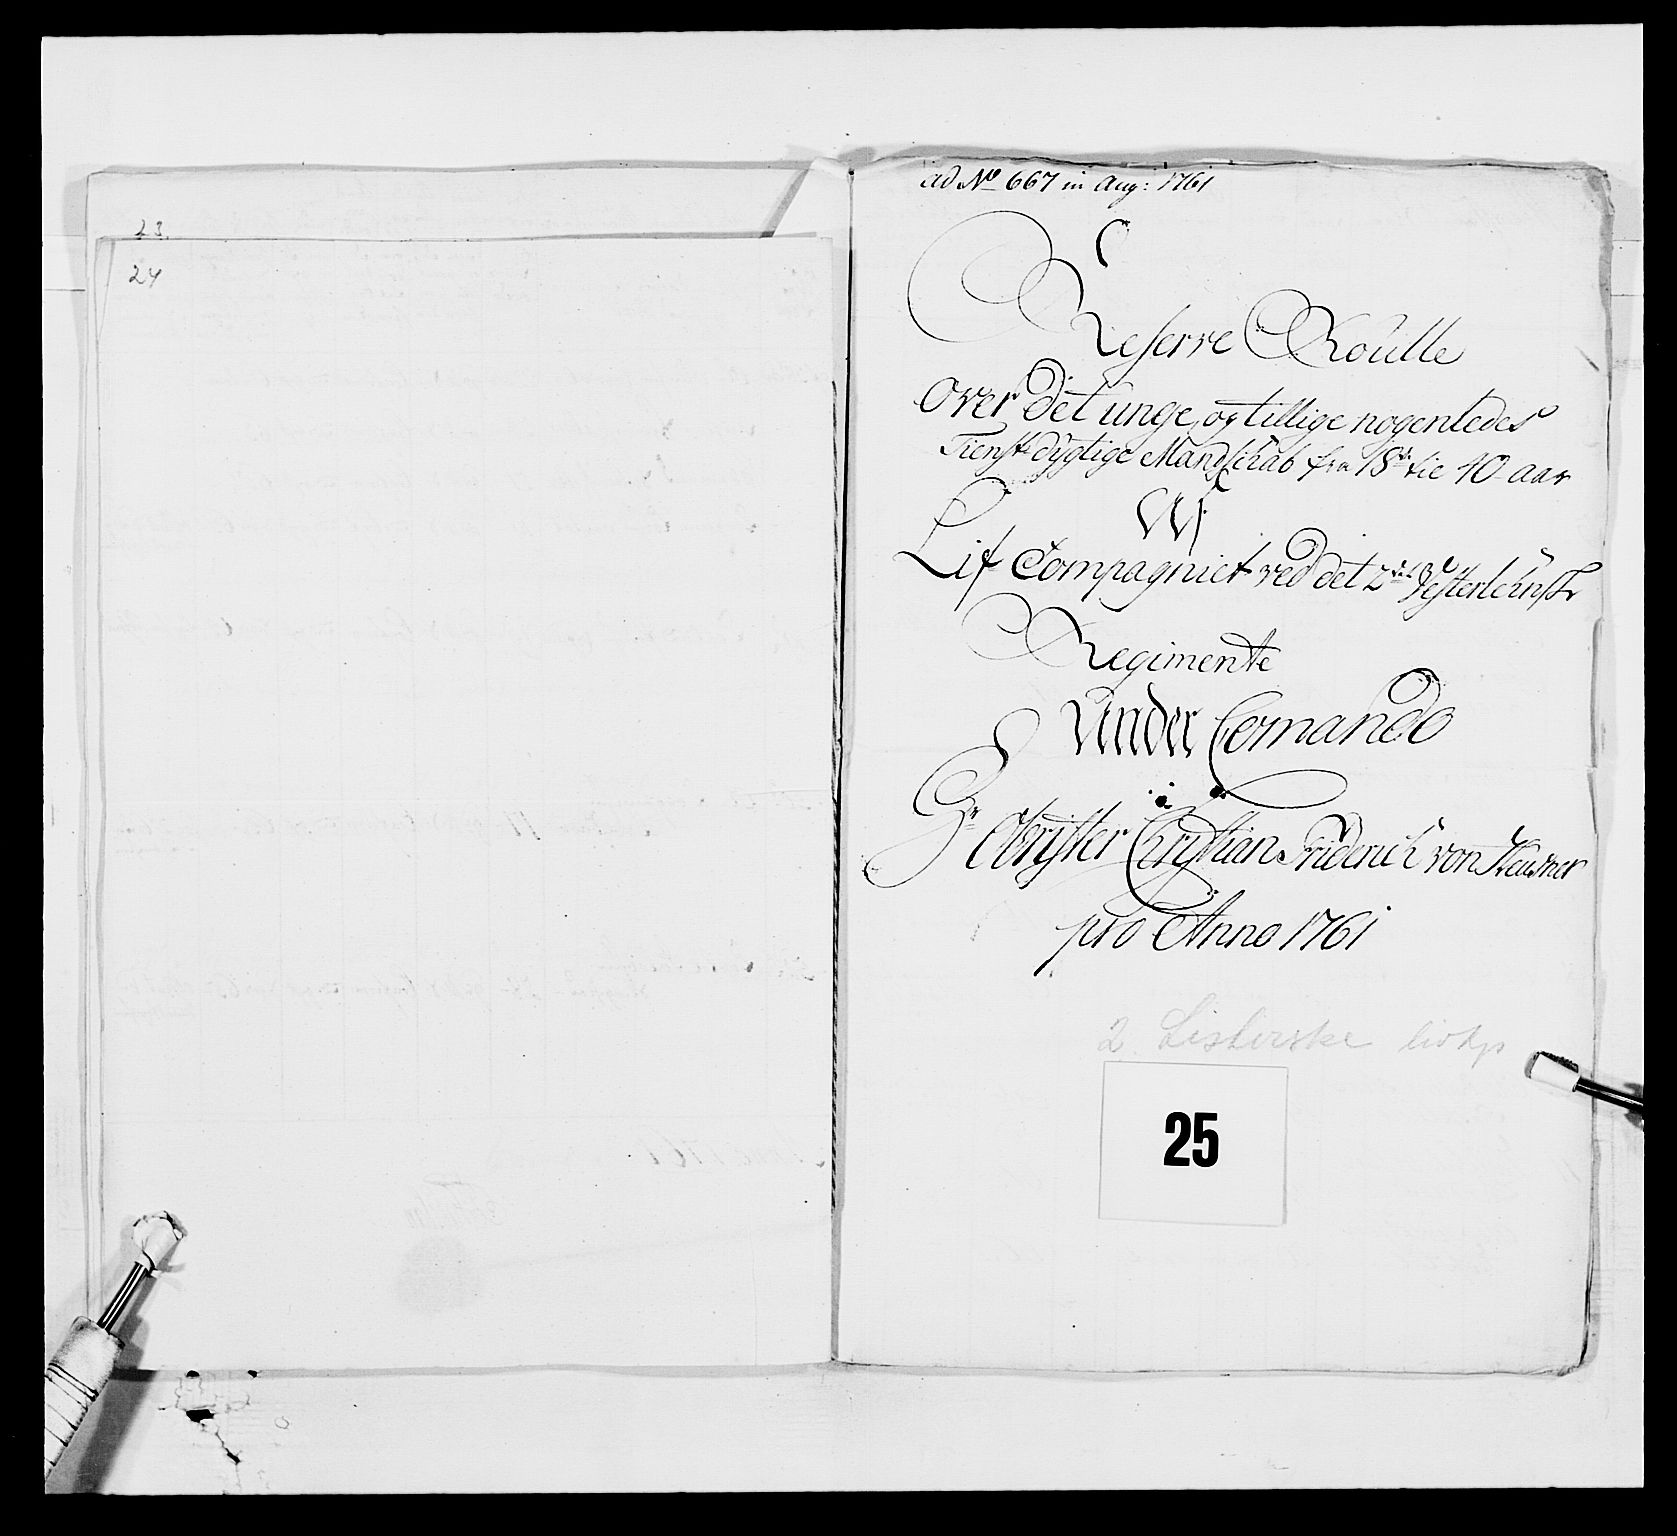 23.
24
ad No 667 in Aug: 1761
Reserve Roulle
Over Det unge, og tillige nogenledes
Tienstdygtige Mandschab fra 18 tie 40 aar
Ved
Lif Compagniet ved det 2det Vesterlehnske
Regimente
Under Comando
Hr Obrister Christian Friderich von
pro Anno 1761
2. Listerske livkp
25